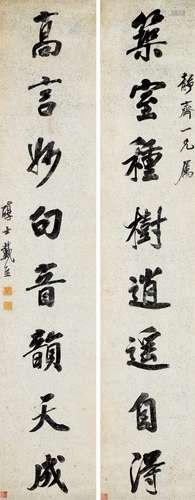 靜齋一兄屬
築室種樹逍遥自得
高言妙句音韻天成
醇士戴熙